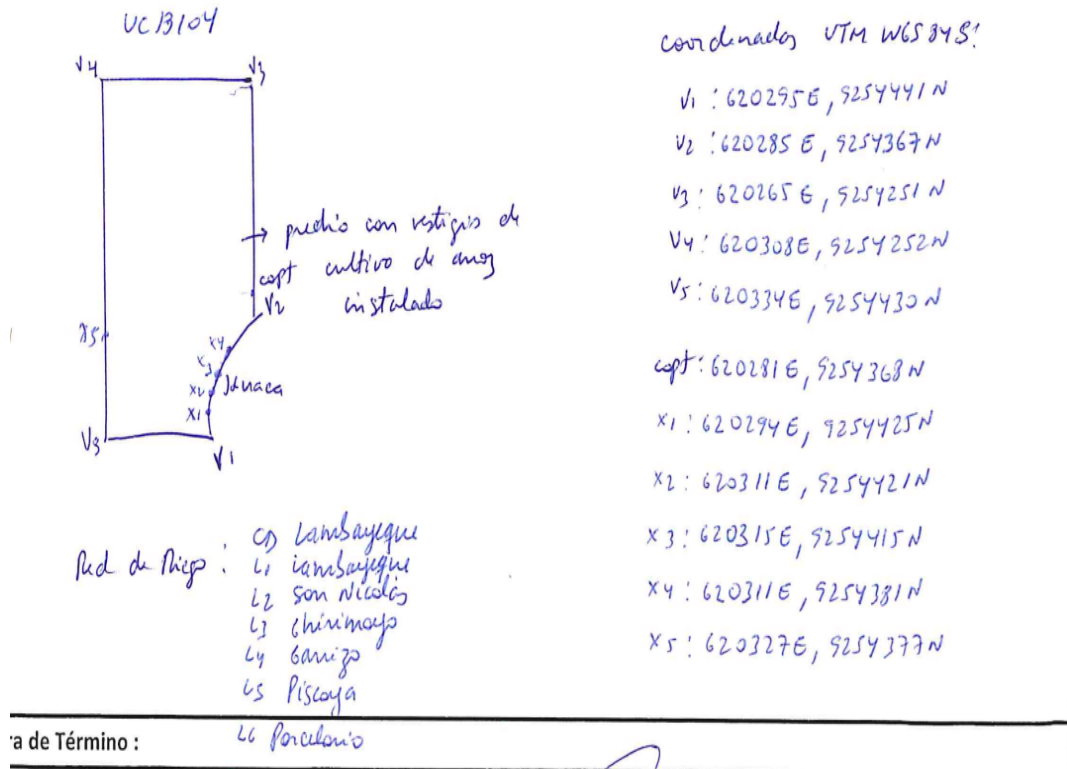 UC 13104
V4
V3
→ predio con vestigio de
capt cultivo de arroz
V2 instalado
X5
x4
x3
x2
x1
V3
V1
Red de Riego : CD Lambayeque
L1 Lambayeque
L2 San Nicolás
L3 Chirimoyo
L4 Carrizo
L5 Piscoya
L6 Parcelario
coordenadas UTM WGS 84 S:
V1 : 620295 E, 9254441 N
V2 : 620285 E, 9254367 N
V3 : 620265 E, 9254251 N
V4 : 620308 E, 9254252 N
V5 : 620334 E, 9254430 N
capt : 620281 E, 9254368 N
x1 : 620294 E, 9254425 N
x2 : 620311 E, 9254421 N
x3 : 620315 E, 9254415 N
x4 : 620311 E, 9254381 N
x5 : 620327 E, 9254377 N
ra de Término :